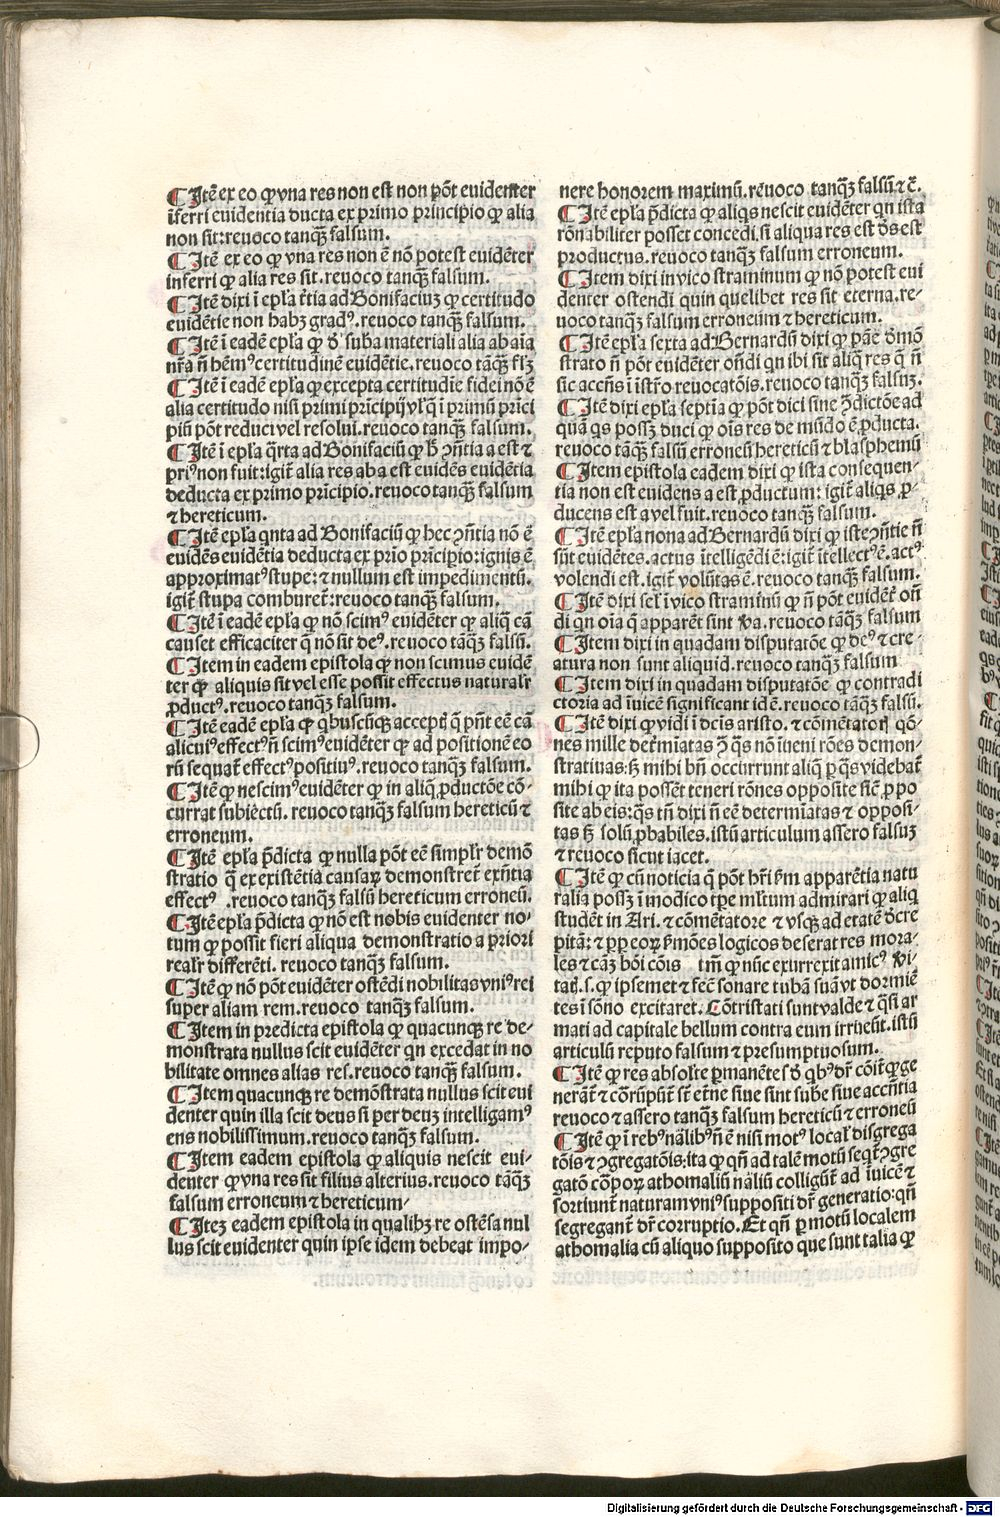 ¶ Itē ex eo ꝙ vna res non est non pōt euidenter
īferri euidentia ducta ex primo principio ꝙ alia
non sit: reuoco tanqꝫ falsum.
¶ Itē ex eo ꝙ vna res non ē nō potest euidēter
inferri ꝙ alia res sit. reuoco tanqꝫ falsum.
¶ Itē dixi ī epl̄a t̄tia ad Bonifaciuꝫ ꝙ certitudo
euidētie non habꝫ gradꝰ. reuoco tanqꝫ falsum.
¶ Itē ī eadē epl̄a ꝙ d̄ suba materiali alia ab aīa
nr̄a n̄ hēmꝰ certitudinē euidētie. reuoco tāqꝫ fl̄ꝫ
¶ Itē ī eadē epl̄a ꝙ excepta certitudīe fidei nō ē
alia certitudo nisi primi prīcipij vl̓ q̄ ī primū prīci
piū pōt reduci vel resolui. reuoco tanqꝫ falsum.
¶ Itē ī epl̄a q̄rta ad Bonifaciū ꝙ h̄ ꝯn̄tia a est ⁊
priꝰ non fuit: igit̄ alia res ab a est euidēs euidētia
deducta ex primo prīcipio. reuoco tanqꝫ falsum
⁊ hereticum.
¶ Itē epl̄a qnta ad Bonifaciū ꝙ hec ꝯn̄tia nō ē
euidēs euidētia deducta ex prīo prīcipio: ignis ē
approximatꝰ stupe: ⁊ nullum est impedimentū.
igit̄ stupa comburet̄: reuoco tanqꝫ falsum.
¶ Itē ī eadē epl̄a ꝙ nō scimꝰ euidēter ꝙ aliq̄ cā
causet efficaciter q̄ nō sit deꝰ. reuoco tāqꝫ falsū.
¶ Item in eadem epistola ꝙ non scimus euidē
ter ꝙ aliquis sit vel esse possit effectus naturalr̄
ꝓductꝰ. reuoco tanqꝫ falsum.
¶ Itē eadē epl̄a ꝙ qbuscūqꝫ acceptꝭ q̄ pn̄t eē cā
alicuiꝰ effectꝰ n̄ scimꝰ euidēter ꝙ ad positionē eo
rū sequat̄ effectꝰ positiuꝰ. reuoco tanqꝫ falsum.
¶ Itē ꝙ nescimꝰ euidēter ꝙ in aliq̄ ꝓductōe cō⸗
currat subiectū. reuoco tanqꝫ falsum hereticū ⁊
erroneum.
¶ Itē epl̄a p̄dicta ꝙ nulla pōt eē simplr̄ demō
stratio q̄ ex existētia causaꝝ demonstret̄ exn̄tia
effectꝰ. reuoco tanqꝫ falsū hereticum erroneū.
¶ Itē epl̄a p̄dicta ꝙ nō est nobis euidenter no⸗
tum ꝙ possit fieri aliqua demonstratio a priori
realr̄ differēti. reuoco tanqꝫ falsum.
¶ Itē ꝙ nō pōt euidēter ostēdi nobilitas vniꝰ rei
super aliam rem. reuoco tanqꝫ falsum.
¶ Item in predicta epistola ꝙ quacunqꝫ re de⸗
monstrata nullus scit euidēter qn excedat in no
bilitate omnes alias res. reuoco tanqꝫ falsum.
¶ Item quacunqꝫ re demōstrata nullus scit eui
denter quin illa scit deus si per deuꝫ intelligamꝰ
ens nobilissimum. reuoco tanqꝫ falsum.
¶ Item eadem epistola ꝙ aliquis nescit eui⸗
denter ꝙ vna res sit filius alterius. reuoco tāqꝫ
falsum erroneum ⁊ hereticum⸗
¶ Iteꝫ eadem epistola in qualibꝫ re ostēsa nul
lus scit euidenter quin ipse idem debeat impo⸗
nere honorem maximū. reuoco tanqꝫ falsū ⁊ c̄.
¶ Itē epl̄a p̄dicta ꝙ aliqs nescit euidēter qn ista
rōnabiliter posset concedi si aliqua res est d̄s est
productus. reuoco tanqꝫ falsum erroneum.
¶ Item dixi in vico straminum ꝙ nō potest eui
denter ostendi quin quelibet res sit eterna. re⸗
uoco tanqꝫ falsum erroneum ⁊ hereticum.
¶ Itē epl̄a sexta ad Bernardū dixi ꝙ pāe d̄mō
strato n̄ pōt euidēter on̄di qn ibi sit aliq̄ res q̄ n̄
sit accn̄s ī istr̄o reuocatōis. reuoco tanqꝫ falsuꝫ.
¶ Itē dixi epl̄a septīa ꝙ pōt dici sine ꝯdictōe ad
quā qs possꝫ duci ꝙ oīs res de mūdo ē ꝓducta.
reuoco tāqꝫ falsū erroneū hereticū ⁊ blasphemū
¶ Item epistola eadem dixi ꝙ ista consequen⸗
tia non est euidens a est ꝓductum: igit̄ aliqs ꝓ⸗
ducens est a vel fuit. reuoco tanqꝫ falsum.
¶ Itē epl̄a nona ad Bernardū dixi ꝙ iste ꝯn̄tie n̄
sūt euidētes. actus ītelligēdi ē: igit̄ ītellectꝰ ē. actꝰ
volendi est. igit̄ volūtas ē. reuoco tanqꝫ falsum.
¶ Itē dixi scꝫ ī vico straminū ꝙ n̄ pōt euidēt̄ on̄
di qn oīa q̄ apparēt sint v̄a. reuoco tāqꝫ falsum
¶ Item dixi in quadam disputatōe ꝙ deꝰ ⁊ cre⸗
atura non sunt aliquid. reuoco tanqꝫ falsum
¶ Item dixi in quadam disputatōe ꝙ contradi
ctoria ad īuicē significant idē. reuoco tāqꝫ falsū.
¶ Itē dixi ꝙ vidi ī dcīs aristo. ⁊ cōmētatorꝭ qō⸗
nes mille det̄mīatas ꝯ q̄s nō īueni rōes demon⸗
stratiuas: sꝫ mihi bn̄ occurrunt aliq̄ ꝑ q̄s videbat̄
mihi ꝙ ita possēt teneri rōnes opposite sic̄ ꝓpo
site ab eis: q̄s tn̄ dixi n̄ eē determīatas ⁊ opposi⸗
tas sꝫ solū ꝓbabiles. istū articulum assero falsuꝫ
⁊ reuoco sicut iacet.
¶ Itē ꝙ cū noticia q̄ pōt hr̄i ẜm apparētia natu
ralia possꝫ ī modico tꝑe ml̄tum admirari ꝙ aliq
studēt in Ari. ⁊ cōmētatore ⁊ vsqꝫ ad etatē d̄cre
pitā: ⁊ ꝓp eoꝝ ẜmōes logicos deserat res mora⸗
les ⁊ cāꝫ bōi cōis tm̄ ꝙ nūc exurrexit amicꝰ v̓i⸗
tatꝭ. s. ꝙ ipsemet ⁊ fec̄ sonare tubā suā vt dormiē
tes ī sōno excitaret. Cōtristati sunt valde ⁊ q̄si ar
mati ad capitale bellum contra eum irruēut. istū
articulū reputo falsum ⁊ presumptuosum.
¶ Itē ꝙ res absol̄te ꝑmanētes d̄ qbꝰ dr̄ cōit̄ ꝙ ge
nerāt̄ ⁊ corrūpūt̄ sūt et̄ne siue sint sub̄e siue accn̄tia
reuoco ⁊ assero tanqꝫ falsum hereticū ⁊ erroneū
¶ Itē ꝙ ī rebꝰ nālibꝰ n̄ ē nisi motꝰ local̓ disgrega
tōis ⁊ ꝯgregatōis: ita ꝙ qn̄ ad talē motū seqt̄ ꝯgre
gatō cōpoꝝ athomaliū nāliū colligūt̄ ad īuicē ⁊
sortiunt̄ naturam vniꝰ suppositi dr̄ generatio: qn̄
segregant̄ dr̄ corruptio. Et qn̄ ꝑ motū localem
athomalia cū aliquo supposito que sunt talia ꝙ
Digitalisierung gefördert durch die Deutsche Forschungsgemeinschaft - DFG